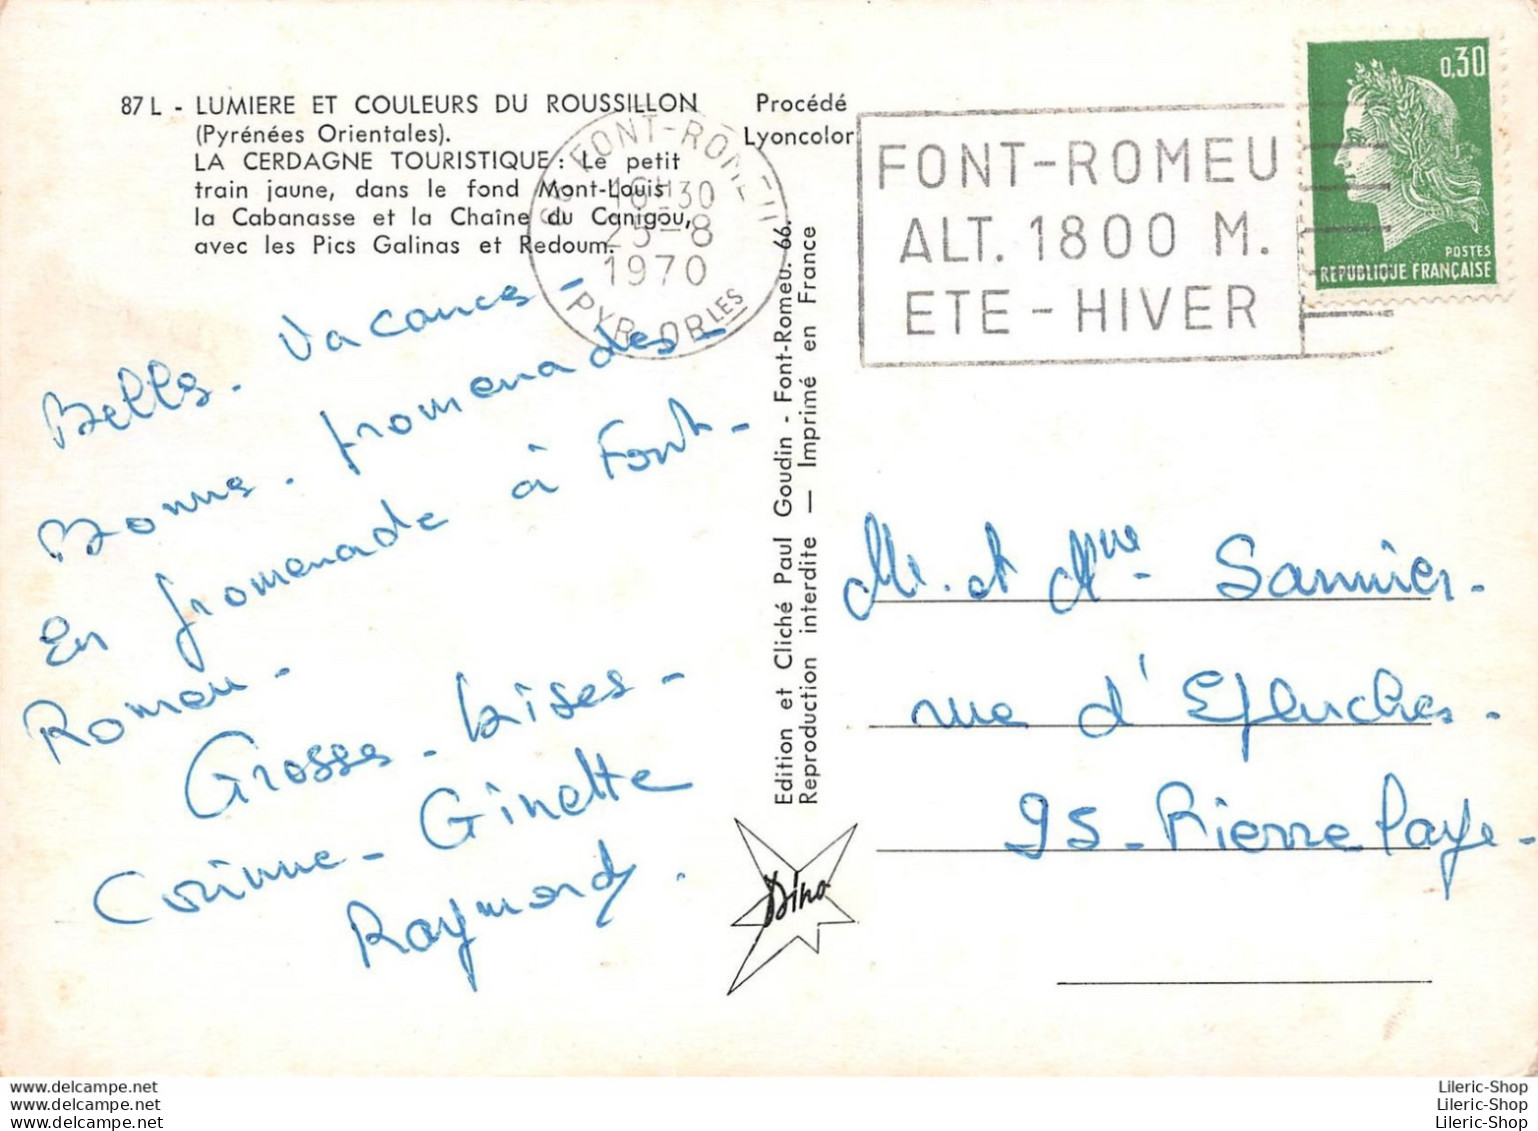 87 L - LUMIERE ET COULEURS DU ROUSSILLON
(Pyrénées Orientales).
LA CERDAGNE TOURISTIQUE : Le petit
train jaune, dans le fond Mont-Louis
la Cabanasse et la Chaîne du Canigou,
avec les Pics Galinas et Redoum.
Procédé
Lyoncolor
FONT-ROMEU
16H30
25-8
1970
PYR.-ORLES
FONT-ROMEU
ALT. 1800 M.
ETE - HIVER
0,30
POSTES
REPUBLIQUE FRANÇAISE
Belles - Vacances
Bonnes - promenades -
En promenade à Font-
Romeu -
Grosses - bises -
Corinne - Ginette
Raymond.
Edition et Cliché Paul Goudin - Font-Romeu. 66.
Reproduction interdite — Imprimé en France
Dino
M. et Mme - Sannier -
rue d'Epluches -
95 - Pierrelaye -
www.delcampe.net
www.delcampe.net
www.delcampe.net
Lileric-Shop
Lileric-Shop
Lileric-Shop